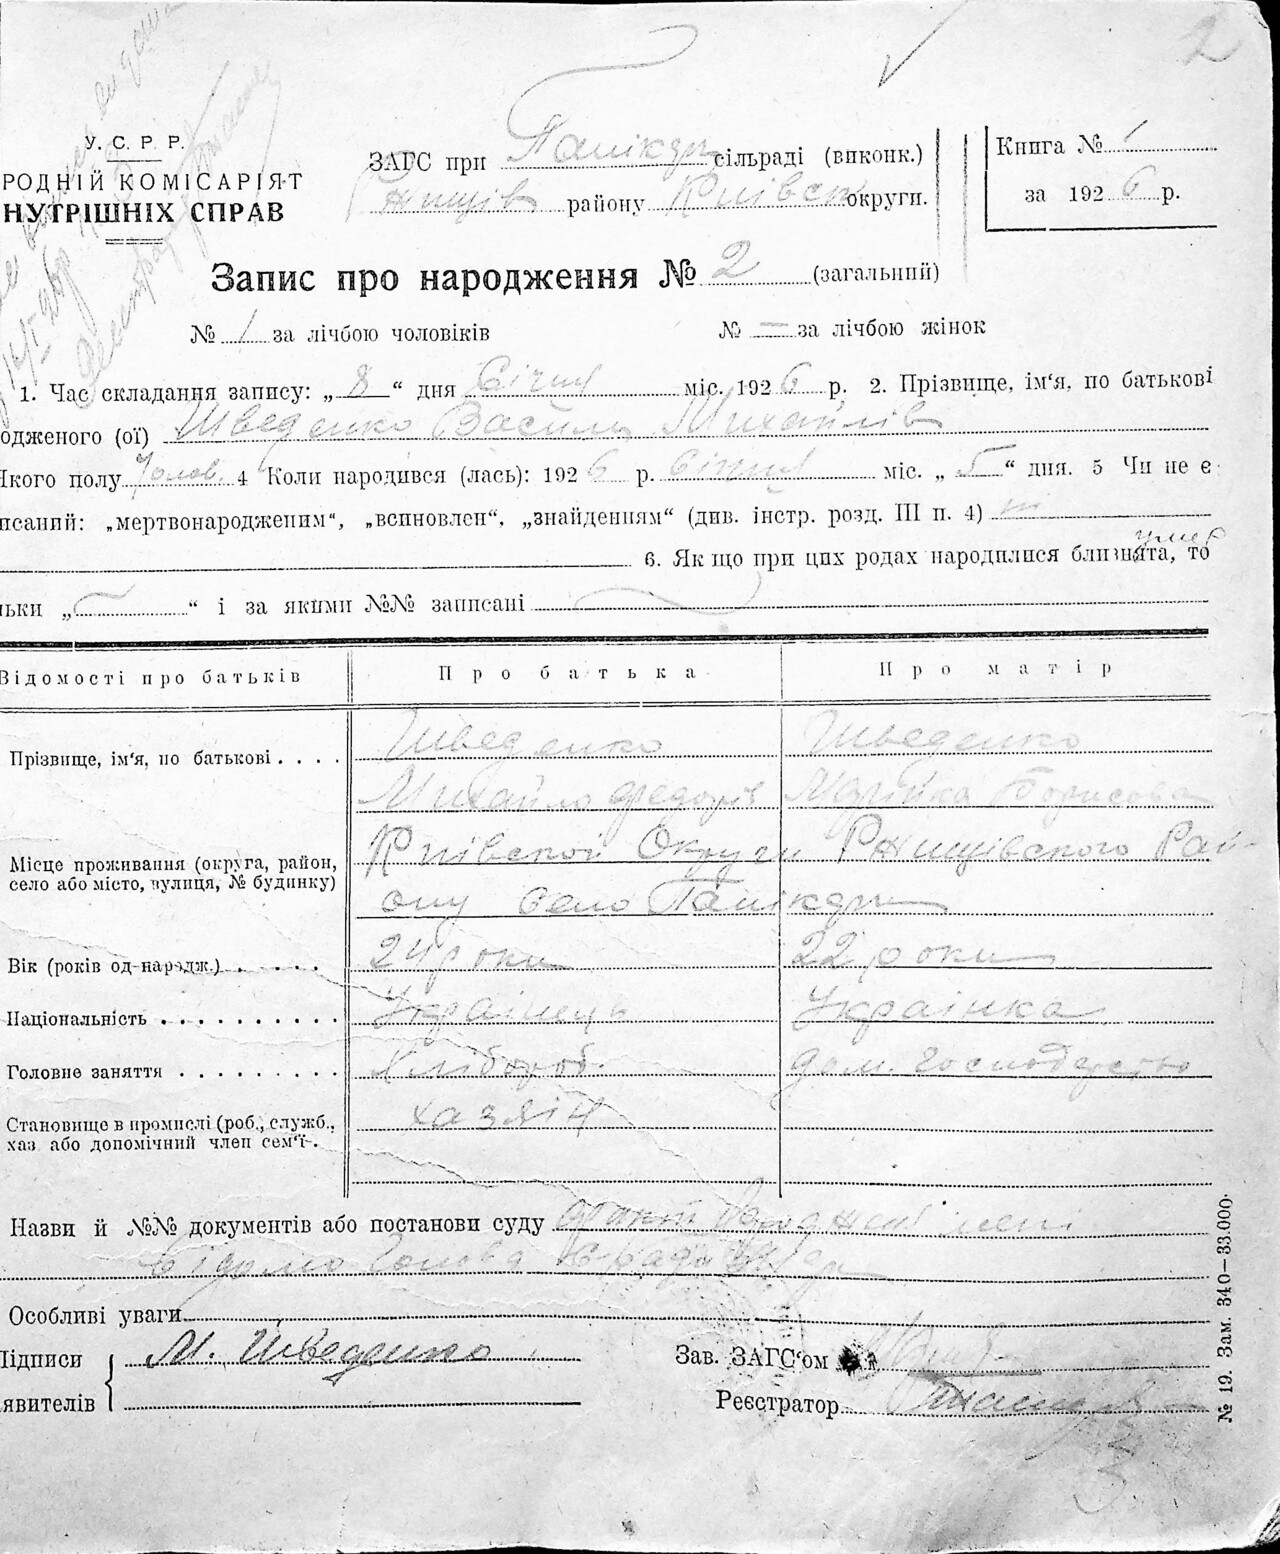 2
У. С. Р. Р.
РОДНІЙ КОМІСАРІЯТ
НУТРІШНІХ СПРАВ
ЗАГС при Папікари сільраді (виконк.)
Ржищів району Київськ округи.
Книга № 1
за 1926 р.
Запис про народження № 2 (загальний)
№ 1 за лічбою чоловіків № — за лічбою жінок
1. Час складання запису: „8“ дня Січня міс. 1926 р. 2. Прізвище, ім‘я, по батькові
одженого (ої) Шведенко Василь Михайлів
Якого полу Чолов. 4 Коли народився (лась): 1926 р. Січня міс. „5“ дня. 5 Чи не є
исаний: „мертвонародженим“, „всиновлен“, „знайденням“ (див. інстр. розд. III п. 4)
6. Як що при цих родах народилися близнята, то
ьки „—“ і за якими №№ записані
Відомості про батьків Про батька Про матір
Прізвище, ім‘я, по батькові . . . . Шведенко Шведенко
Михайло Федорів Марійка Борисова
Місце проживання (округа, район, село або місто, вулиця, № будинку) Київской Округи Ржищівского Рай-
ону Село Папікари
Вік (років од народж.) . . . . . 24 роки 22 роки
Національність . . . . . . . . . . Украінець Украінка
Головне заняття . . . . . . . . . Хлібороб. дом. Господарство
Становище в промислі (роб., служб., хаз або допомічний член сем‘ї . хазяін
Назви й №№ документів або постанови суду факт народженя мені
відомо Голова С-ради
Особливі уваги
Підписи М. Шведенко
явителів
Зав. ЗАГС‘ом
Реєстратор
№ 19. Зам. 340—33.000.